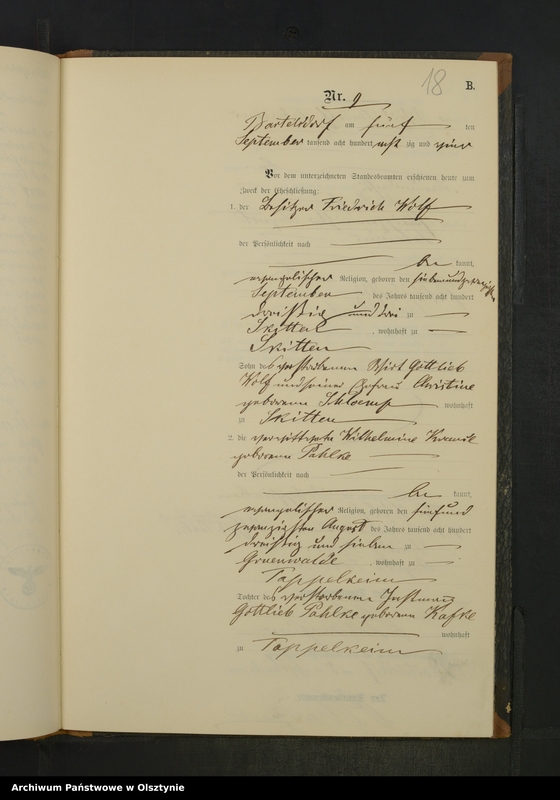 18
B.
Nr. 9
Bartelsdorf am fünf ten
September tausend acht hundert acht zig und
Vor dem unterzeichneten Standesbeamten erschienen heute zum
Zweck der Eheschließung:
1. der Besitzer Friedrich Wolf
der Persönlichkeit nach
be kannt,
evangelischer Religion, geboren den siebenundzwanzigsten
September des Jahres tausend acht hundert
dreißig und drei zu
Skitten, wohnhaft zu
Skitten
Sohn des verstorbenen Wirt Gottlieb
Wolf und seiner Ehefrau Christine
geborenen wohnhaft
zu Skitten
2. die verwittwete Wilhelmine
geborene Pahlke
der Persönlichkeit nach
be kannt,
evangelischer Religion, geboren den fünfund
zwanzigsten August des Jahres tausend acht hundert
dreißig und sieben zu
Gruenwalde, wohnhaft zu
Tappelkeim
Tochter des verstorbenen Instmann
Gottlieb Pahlke geborene Kafke
wohnhaft
zu Tappelkeim
Archiwum Państwowe w Olsztynie